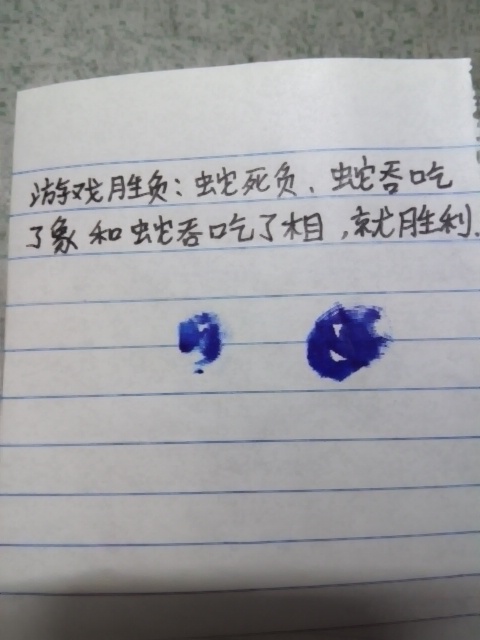 游戏胜负：蛇死负、蛇吞吃
了象和蛇吞吃了相，就胜利.